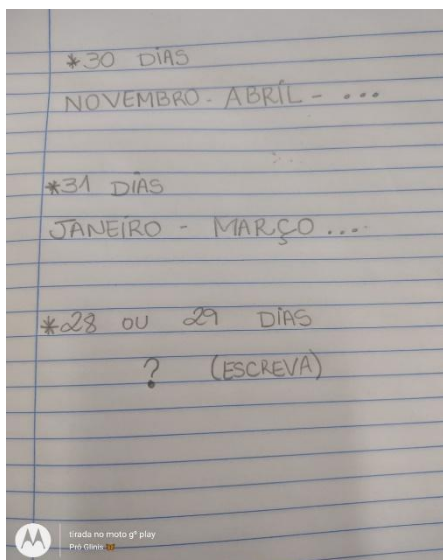 *30 DIAS
NOVEMBRO - ABRIL - ...
*31 DIAS
JANEIRO - MARÇO ...
*28 OU 29 DIAS
? (ESCREVA)
tirada no moto g⁸ play
Pró Glinis